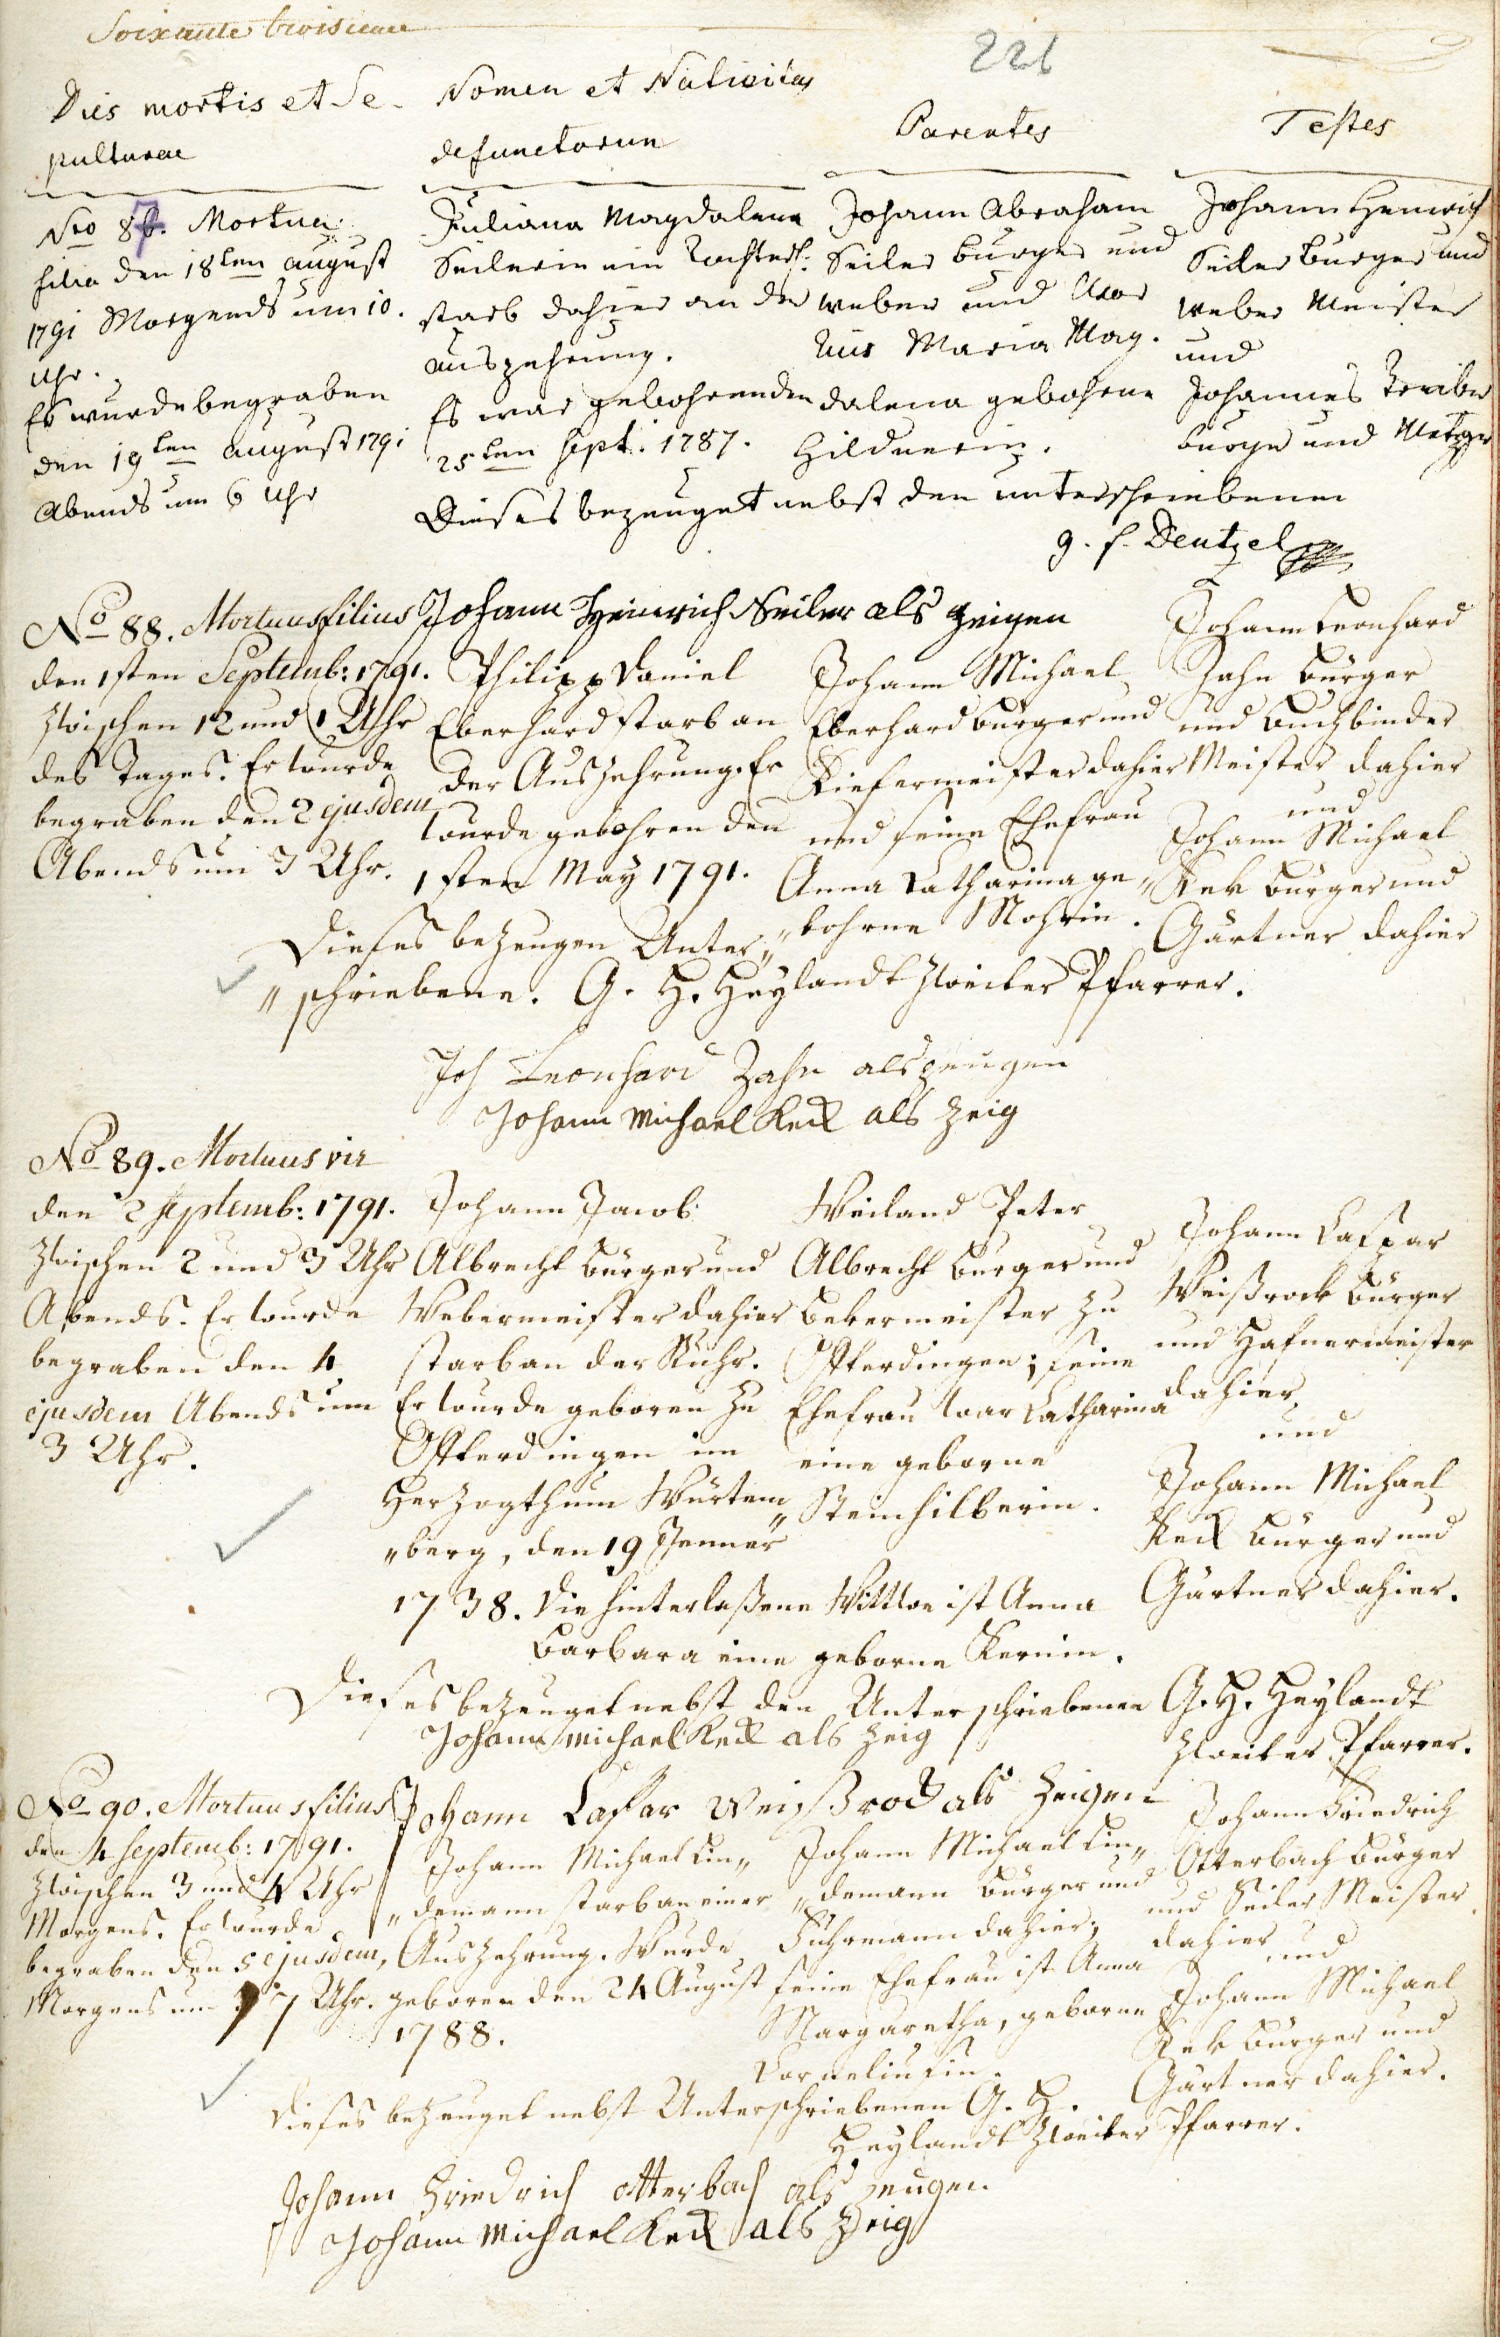 Soixante troisieme
221
Dies mortis et Se-
pulturae
Nomen et Nativitas
defunctorum
Parentes
Testes
Nro 87. Mortua
filia den 18ten august
1791 Morgends um 10.
Uhr.
Es wurde begraben
den 19ten august 1791
Abends um 6 Uhr
Juliana Magdalena
Seilerin ein Töchterl:
starb dahier an der
auszehrung.
Es war gebohren den
25ten Sept: 1787.
Johann Abraham
Seiler burger und
weber und Uxor
Eius Maria Mag.
dalena gebohrne
Hildnerin.
Johann Henrich
Seiler burger und
weber Meister
und
Johannes
burger und Metzger
Dieses bezeuget nebst den unterschriebenen
g. f. Deutzel
Johann Heinrich Seiler als zeigen
No 88. Mortuus filius
den 1sten Septemb: 1791.
zwischen 12 und 1 Uhr
des Tages. Er wurde
begraben den 2 ejusdem
Abends um 3 Uhr.
Philipp Daniel
Eberhard starb an
der Auszehrung. Er
wurde gebohren den
1sten May 1791.
Johann Michael
Eberhard burger und
Kiefermeister dahier
und seine Ehefrau
Anna Catharina ge„
„bohrne Mohrin.
Johann Leonhard
Zahn Bürger
und Buchbinder
Meister dahier
und
Johann Michael
Kek Bürger und
Gärtner dahier
Dieses bezeugen Unter„
„schriebene. G. H. Heylandt Zweiter Pfarrer.
Joh Leonhard Zahn als zeugen
Johann Michael Keck als zeig
No 89. Mortuus vir
den 2 Septemb: 1791.
zwischen 2 und 3 Uhr
Abends. Er wurde
begraben den 4
ejusdem Abends um
3 Uhr.
Johann Jacob
Albrecht Bürger und
Webermeister dahier
starb an der Ruhr.
Er wurde geboren zu
Offterdingen im
Herzogthum Würtem„
„berg, den 19 Jenner
1738. Die hinterlaßene Wittwe ist Anna
Barbara eine geborne Kernin.
Weiland Peter
Albrecht Burger und
Bekermeister zu
Offterdingen; seine
Ehefrau war Catharina
eine geborne
Steinhilberin.
Johann Caspar
Weißrock Bürger
und Hafnermeister
dahier,
und
Johann Michael
Keck Bürger und
Gärtner dahier.
Dieses bezeuget nebst den Unterschriebenen G. H. Heylandt
Zweiter Pfarrer.
Johann Michael Keck als zeig
Johann CasPar Weißrock als zeigen
No 90. Mortuus filius
den 4 Septemb: 1791.
zwischen 3 und 4 Uhr
Morgens. Er wurde
begraben den 5 ejusdem,
Morgens um 7 Uhr.
Johann Michael Lin„
„demann starb an einer
Auszehrung. Wurde
geboren den 24 August
1788.
Johann Michael Lin„
„demann Bürger und
Fuhrmann dahier;
seine Ehefrau ist Anna
Margaretha, geborne
Corneliusin.
Johann Friedrich
Otterbach Bürger
und Seiler Meister
dahier und
Johann Michael
Kek Bürger und
Gärtner dahier.
Dieses bezeuget nebst Unterschriebenen G. H.
Heylandt Zweiter Pfarrer.
Johann Friedrich otterbach als zeugen
Johann Michael Keck als zeig